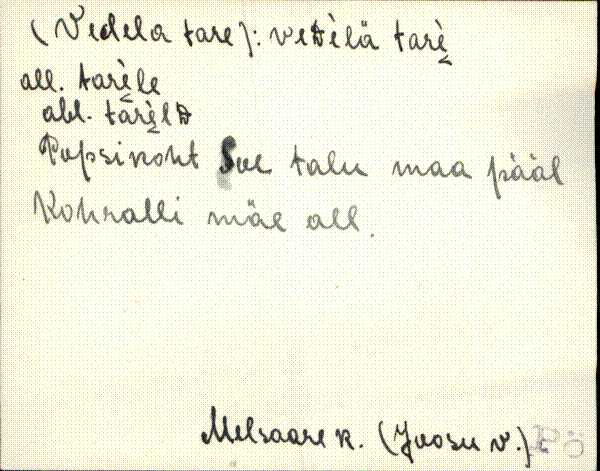 (Vedela tare): veᴅèlä tarè̬
all. tarè̬le
abl. tarè̬lᴅ
Popsikoht Soe talu maa pääl
Kohralli mäe all.
Melsaare k. (Joosu v.). Põ